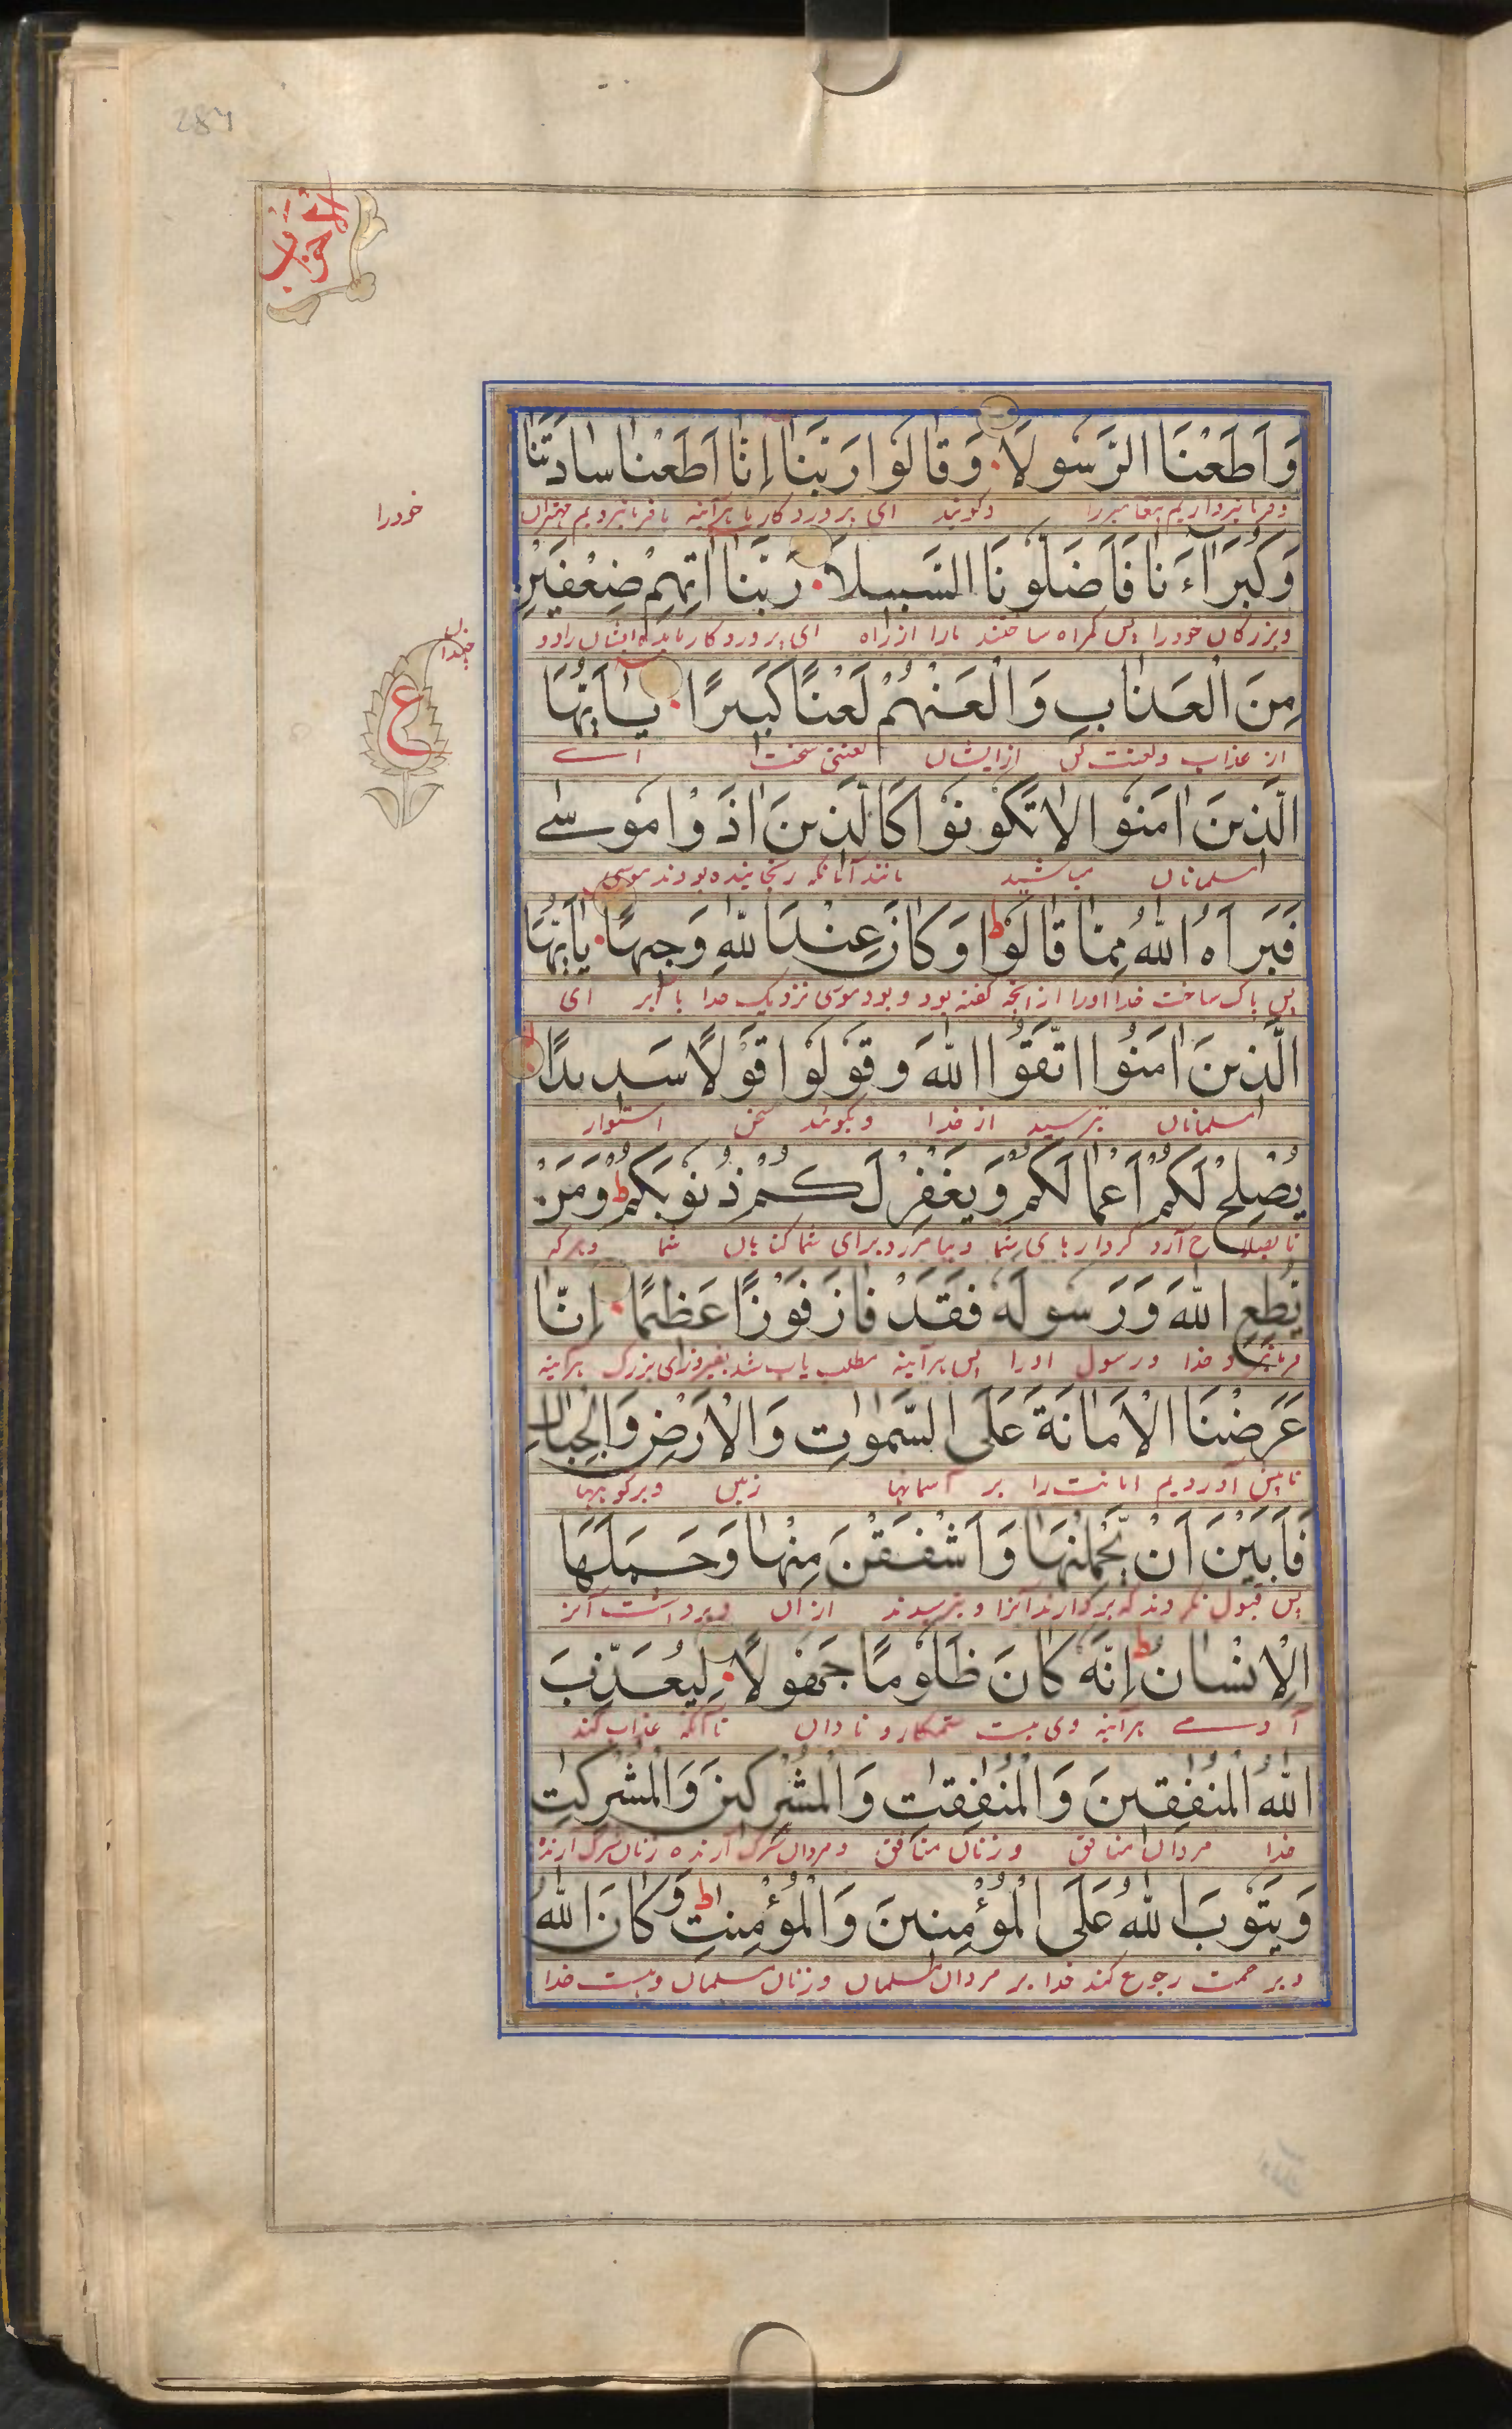 284
الاحزاب
وَاَطَعْنَا الرَّسُولَا وَقَالُوا رَبَّنَا اِنَّا اَطَعْنَا سَادَتَنَا
و فرمانبرداریم پیغامبر را و گویند ای پروردگار ما هرآینه ما فرمانبردیم مهتران
خود را
وَكُبَرَاءَنَا فَاَضَلُّونَا السَّبِيلَا رَبَّنَا اٰتِهِمْ ضِعْفَيْنِ
و بزرگان خود را پس گمراه ساختند ما را از راه ای پروردگار ما بده ایشان را دو
چندان
مِنَ الْعَذَابِ وَالْعَنْهُمْ لَعْنًا كَبِيرًا يٰاَيُّهَا
از عذاب و لعنت کن ایشان لعنتی سخت اے
ع
الَّذِينَ اٰمَنُوا لَا تَكُونُوا كَالَّذِينَ اٰذَوْا مُوسٰى
مسلمانان مباشید مانند آنانکه رنجانیده بودند موسی
فَبَرَّاَهُ اللّٰهُ مِمَّا قَالُوا ط وَكَانَ عِنْدَ اللّٰهِ وَجِيهًا يٰاَيُّهَا
پس پاک ساخت خدا او را از آنچه گفته بود و بود موسی نزدیک خدا با آبر ای
الَّذِينَ اٰمَنُوا اتَّقُوا اللّٰهَ وَقُولُوا قَوْلًا سَدِيدًا
مسلمانان بترسید از خدا و بگوئید سخن استوار
يُصْلِحْ لَكُمْ اَعْمَالَكُمْ وَيَغْفِرْ لَكُمْ ذُنُوبَكُمْ ط وَمَنْ
تا بصلاح آرد کردارهای شما و بیامرزد برای شما گناهان شما و هر که
يُطِعِ اللّٰهَ وَرَسُولَهُ فَقَدْ فَازَ فَوْزًا عَظِيمًا اِنَّا
فرمانبرد خدا و رسول او را پس هرآینه مطلب یاب شد بفیروزی بزرگ هرآینه
عَرَضْنَا الْاَمَانَةَ عَلَى السَّمٰوٰتِ وَالْاَرْضِ وَالْجِبَالِ
ما پیش آوردیم امانت را بر آسمانها زمین و بر کوهها
فَاَبَيْنَ اَنْ يَحْمِلْنَهَا وَاَشْفَقْنَ مِنْهَا وَحَمَلَهَا
پس قبول نکردند که بردارند آنرا و بترسیدند از آن و برداشت آنر
الْاِنْسَانُ ط اِنَّهُ كَانَ ظَلُومًا جَهُولًا لِيُعَذِّبَ
آدمے هرآینه وی هست ستمکار و نادان تا آنکه عذاب کند
اللّٰهُ الْمُنٰفِقِينَ وَالْمُنٰفِقٰتِ وَالْمُشْرِكِينَ وَالْمُشْرِكٰتِ
خدا مردان منافق و زنان منافق و مردان شرک آرنده زنان شرک آرنده
وَيَتُوبَ اللّٰهُ عَلَى الْمُؤْمِنِينَ وَالْمُؤْمِنٰتِ ط وَكَانَ اللّٰهُ
و برحمت رجوع کند خدا بر مردان مسلمان و زنان مسلمان و هست خدا